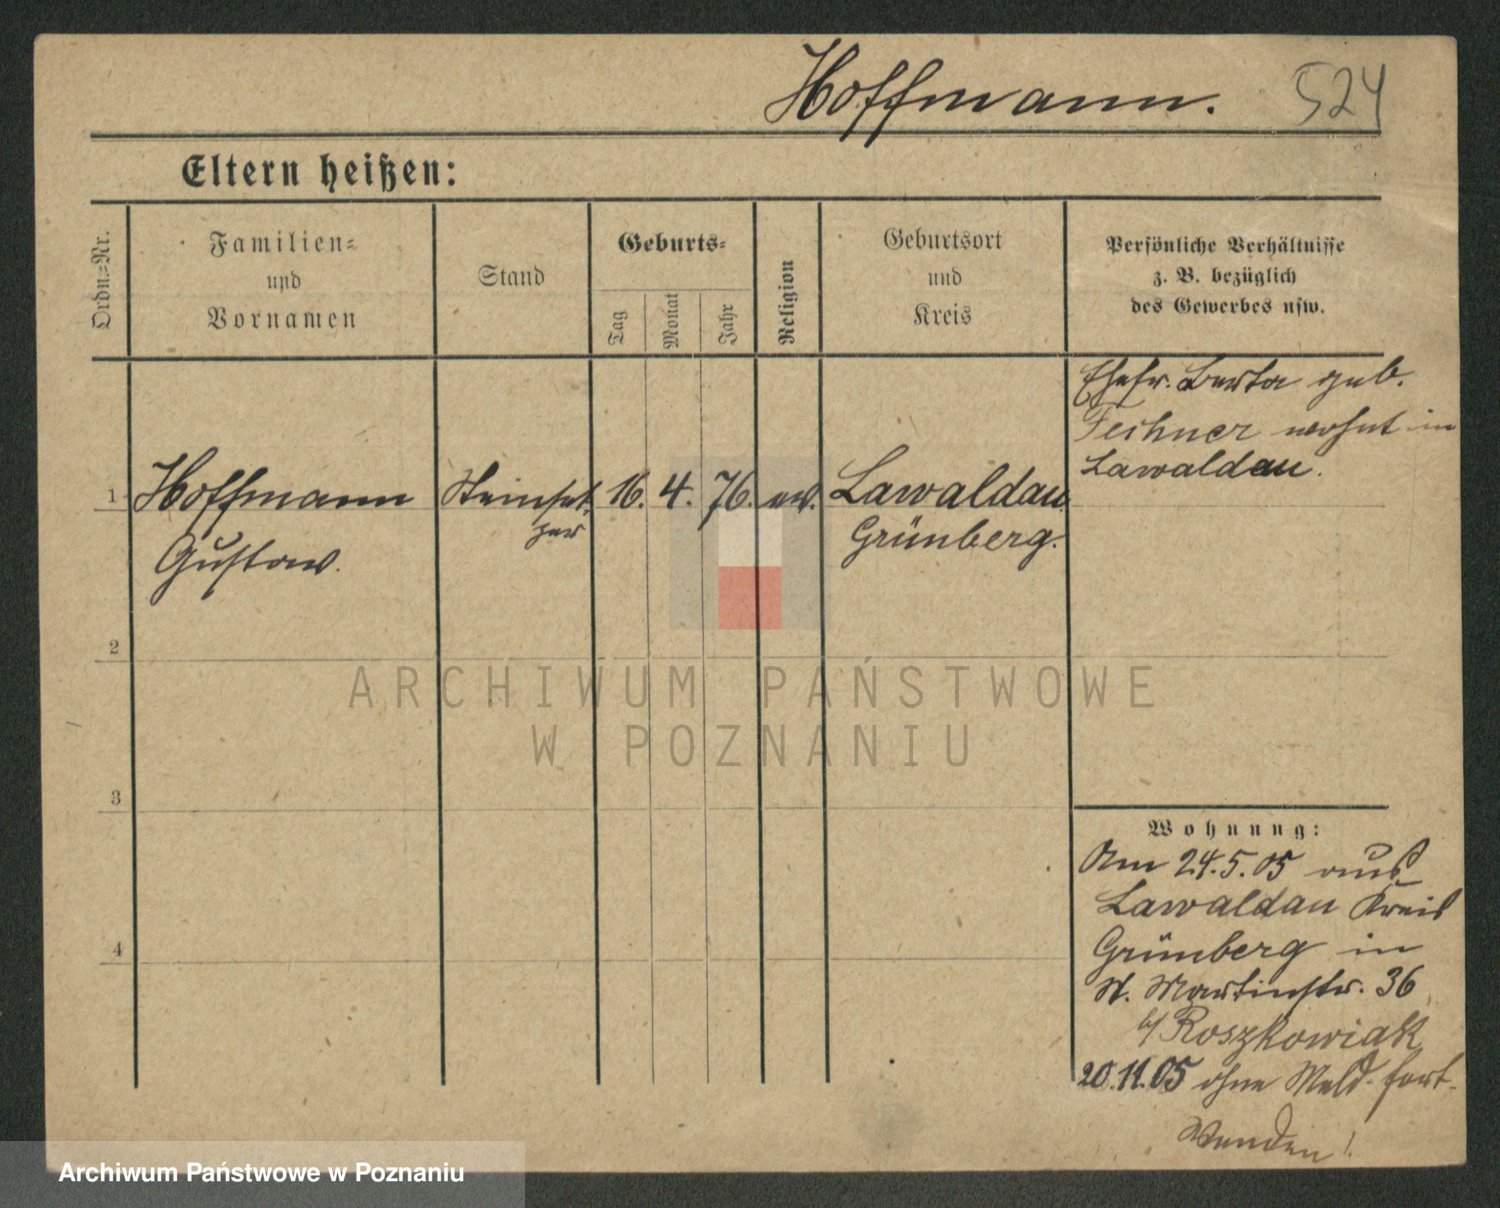 Hoffmann. 524
Eltern heißen:
Ordn.=Nr.
Familien=
und
Vornamen
Stand
Geburts=
Tag
Monat
Jahr
Religion
Geburtsort
und
Kreis
Persönliche Verhältnisse
z. B. bezüglich
des Gewerbes usw.
Ehefr. Berta geb.
Feihner wohnt in
Lawaldau.
1 Hoffmann Steinset- 16. 4. 76. ev. Lawaldau
zer Grünberg.
Gustav.
2
3
4
Wohnung:
Am 24.5.05 aus
Lawaldau Kreis
Grünberg in
St. Martinstr. 36
b/ Roszkowiak
20.11.05 ohne Meld. fort.
Wenden!
ARCHIWUM PAŃSTWOWE
W POZNANIU
Archiwum Państwowe w Poznaniu